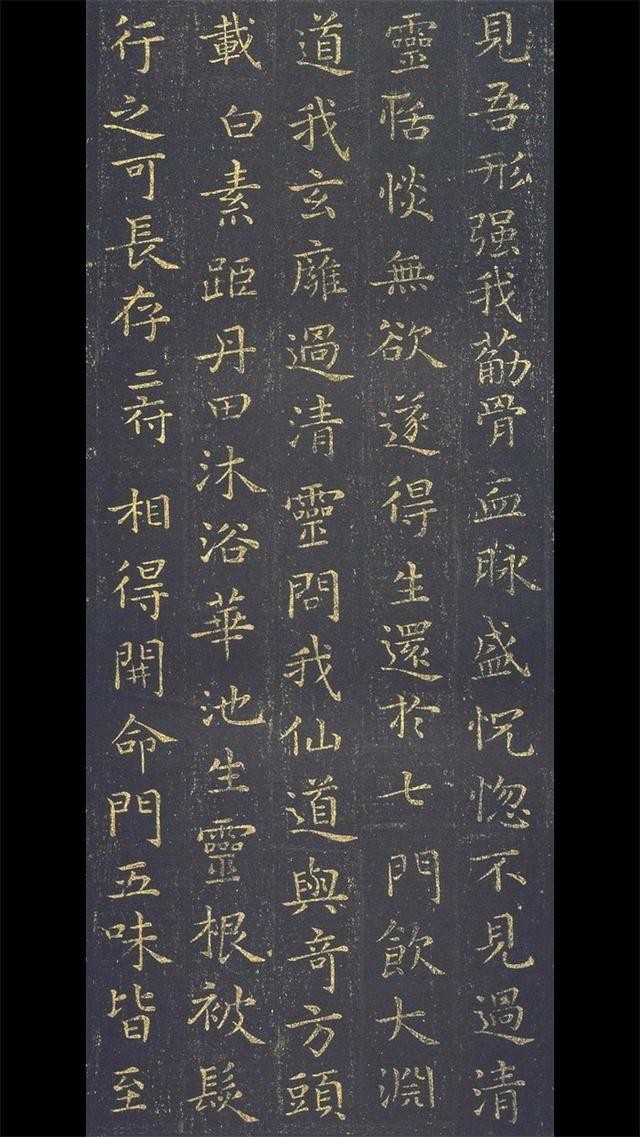 見吾形强我葋骨血脉盛怳惚不見過清
靈恬惔無欲遂得生還於七門飲大淵
道我玄廱過清靈問我仙道與竒方頭
載白素距丹田沐浴華池生靈根被髮
行之可長存二府相得開命門五味皆至